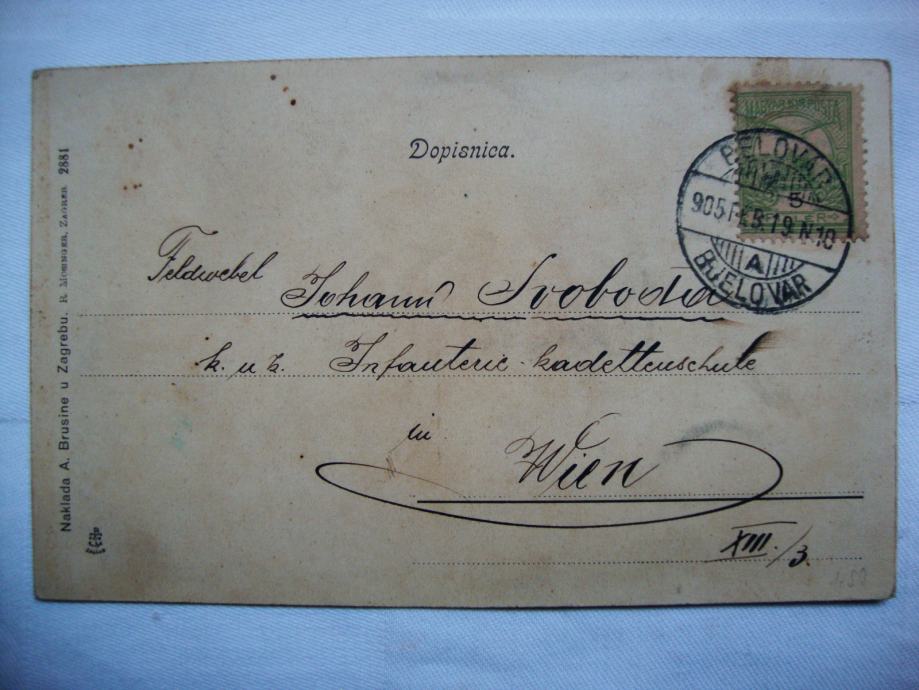 Dopisnica.
MAGYAR KIR. POSTA
5
BELOVÁR
905 FEB. 19. N10
A
BJELOVAR
Feldwebel
Johann Svoboda
k. u. k. Infanterie-kadettenschule
in
Wien
XIII./3.
Naklada A. Brusine u Zagrebu. R. Mosinger, Zagreb 2881